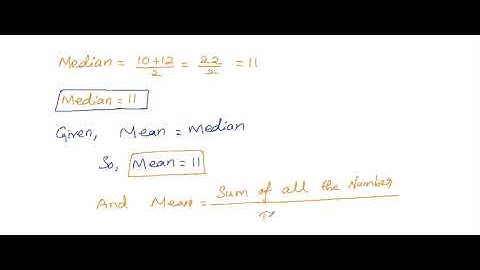 Median = 10+12/2 = 22/2 = 11
Median = 11
Given, Mean = Median
So, Mean = 11
And Mean = Sum of all the Number